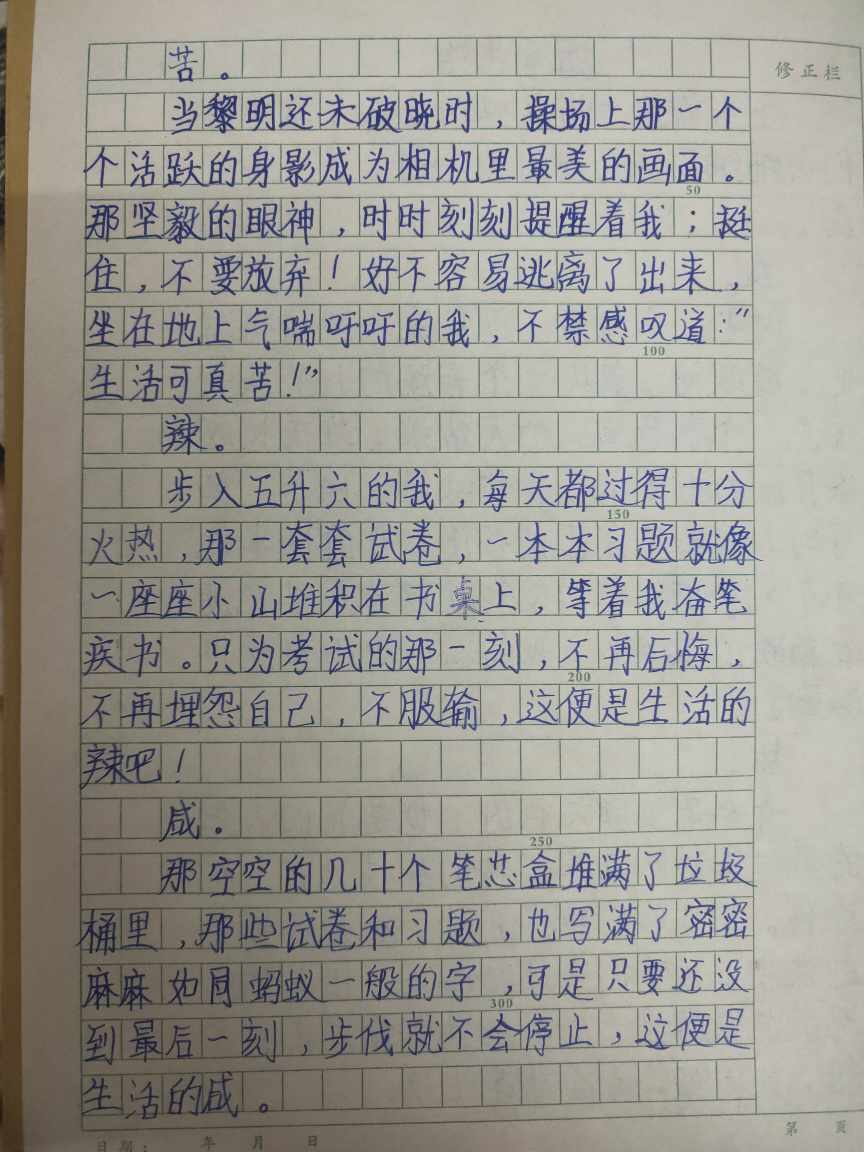 修正栏
苦。
当黎明还未破晓时，操场上那一个
个活跃的身影成为相机里最美的画面。
50
那坚毅的眼神，时时刻刻提醒着我；挺
住，不要放弃！好不容易逃离了出来，
坐在地上气喘吁吁的我，不禁感叹道：“
100
生活可真苦！”
辣。
步入五升六的我，每天都过得十分
150
火热，那一套套试卷，一本本习题就像
一座座小山堆积在书桌上，等着我奋笔
疾书。只为考试的那一刻，不再后悔，
200
不再埋怨自己，不服输，这便是生活的
辣吧！
咸。
250
那空空的几十个笔芯盒堆满了垃圾
桶里，那些试卷和习题，也写满了密密
麻麻如同蚂蚁一般的字，可是只要还没
300
到最后一刻，步伐就不会停止，这便是
生活的咸。
日期： 年 月 日
第 页